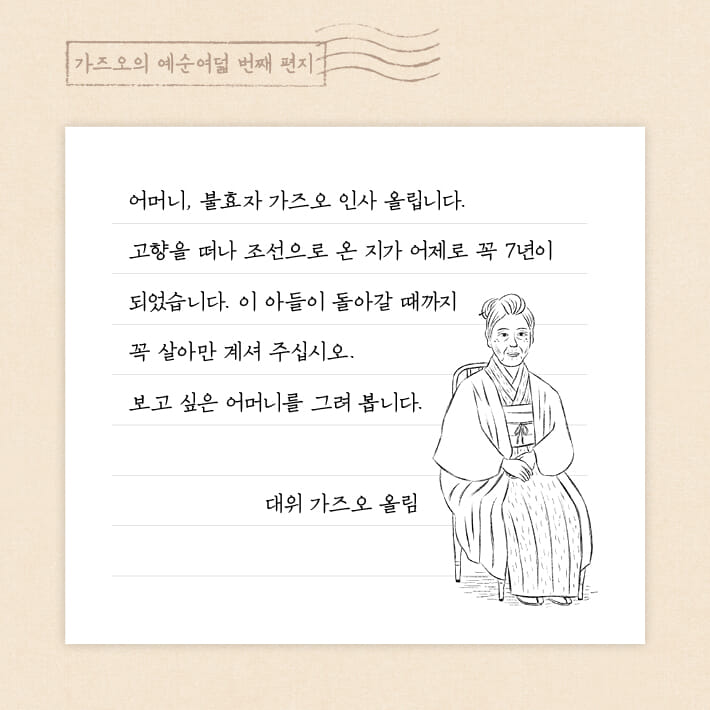 가즈오의 예순여덟 번째 편지
어머니, 불효자 가즈오 인사 올립니다.
고향을 떠나 조선으로 온 지가 어제로 꼭 7년이
되었습니다. 이 아들이 돌아갈 때까지
꼭 살아만 계셔 주십시오.
보고 싶은 어머니를 그려 봅니다.
대위 가즈오 올림